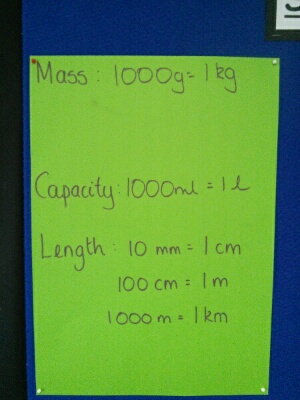 Mass : 1000g = 1 kg
Capacity : 1000ml = 1 l
Length : 10 mm = 1 cm
100 cm = 1 m
1000 m = 1 km